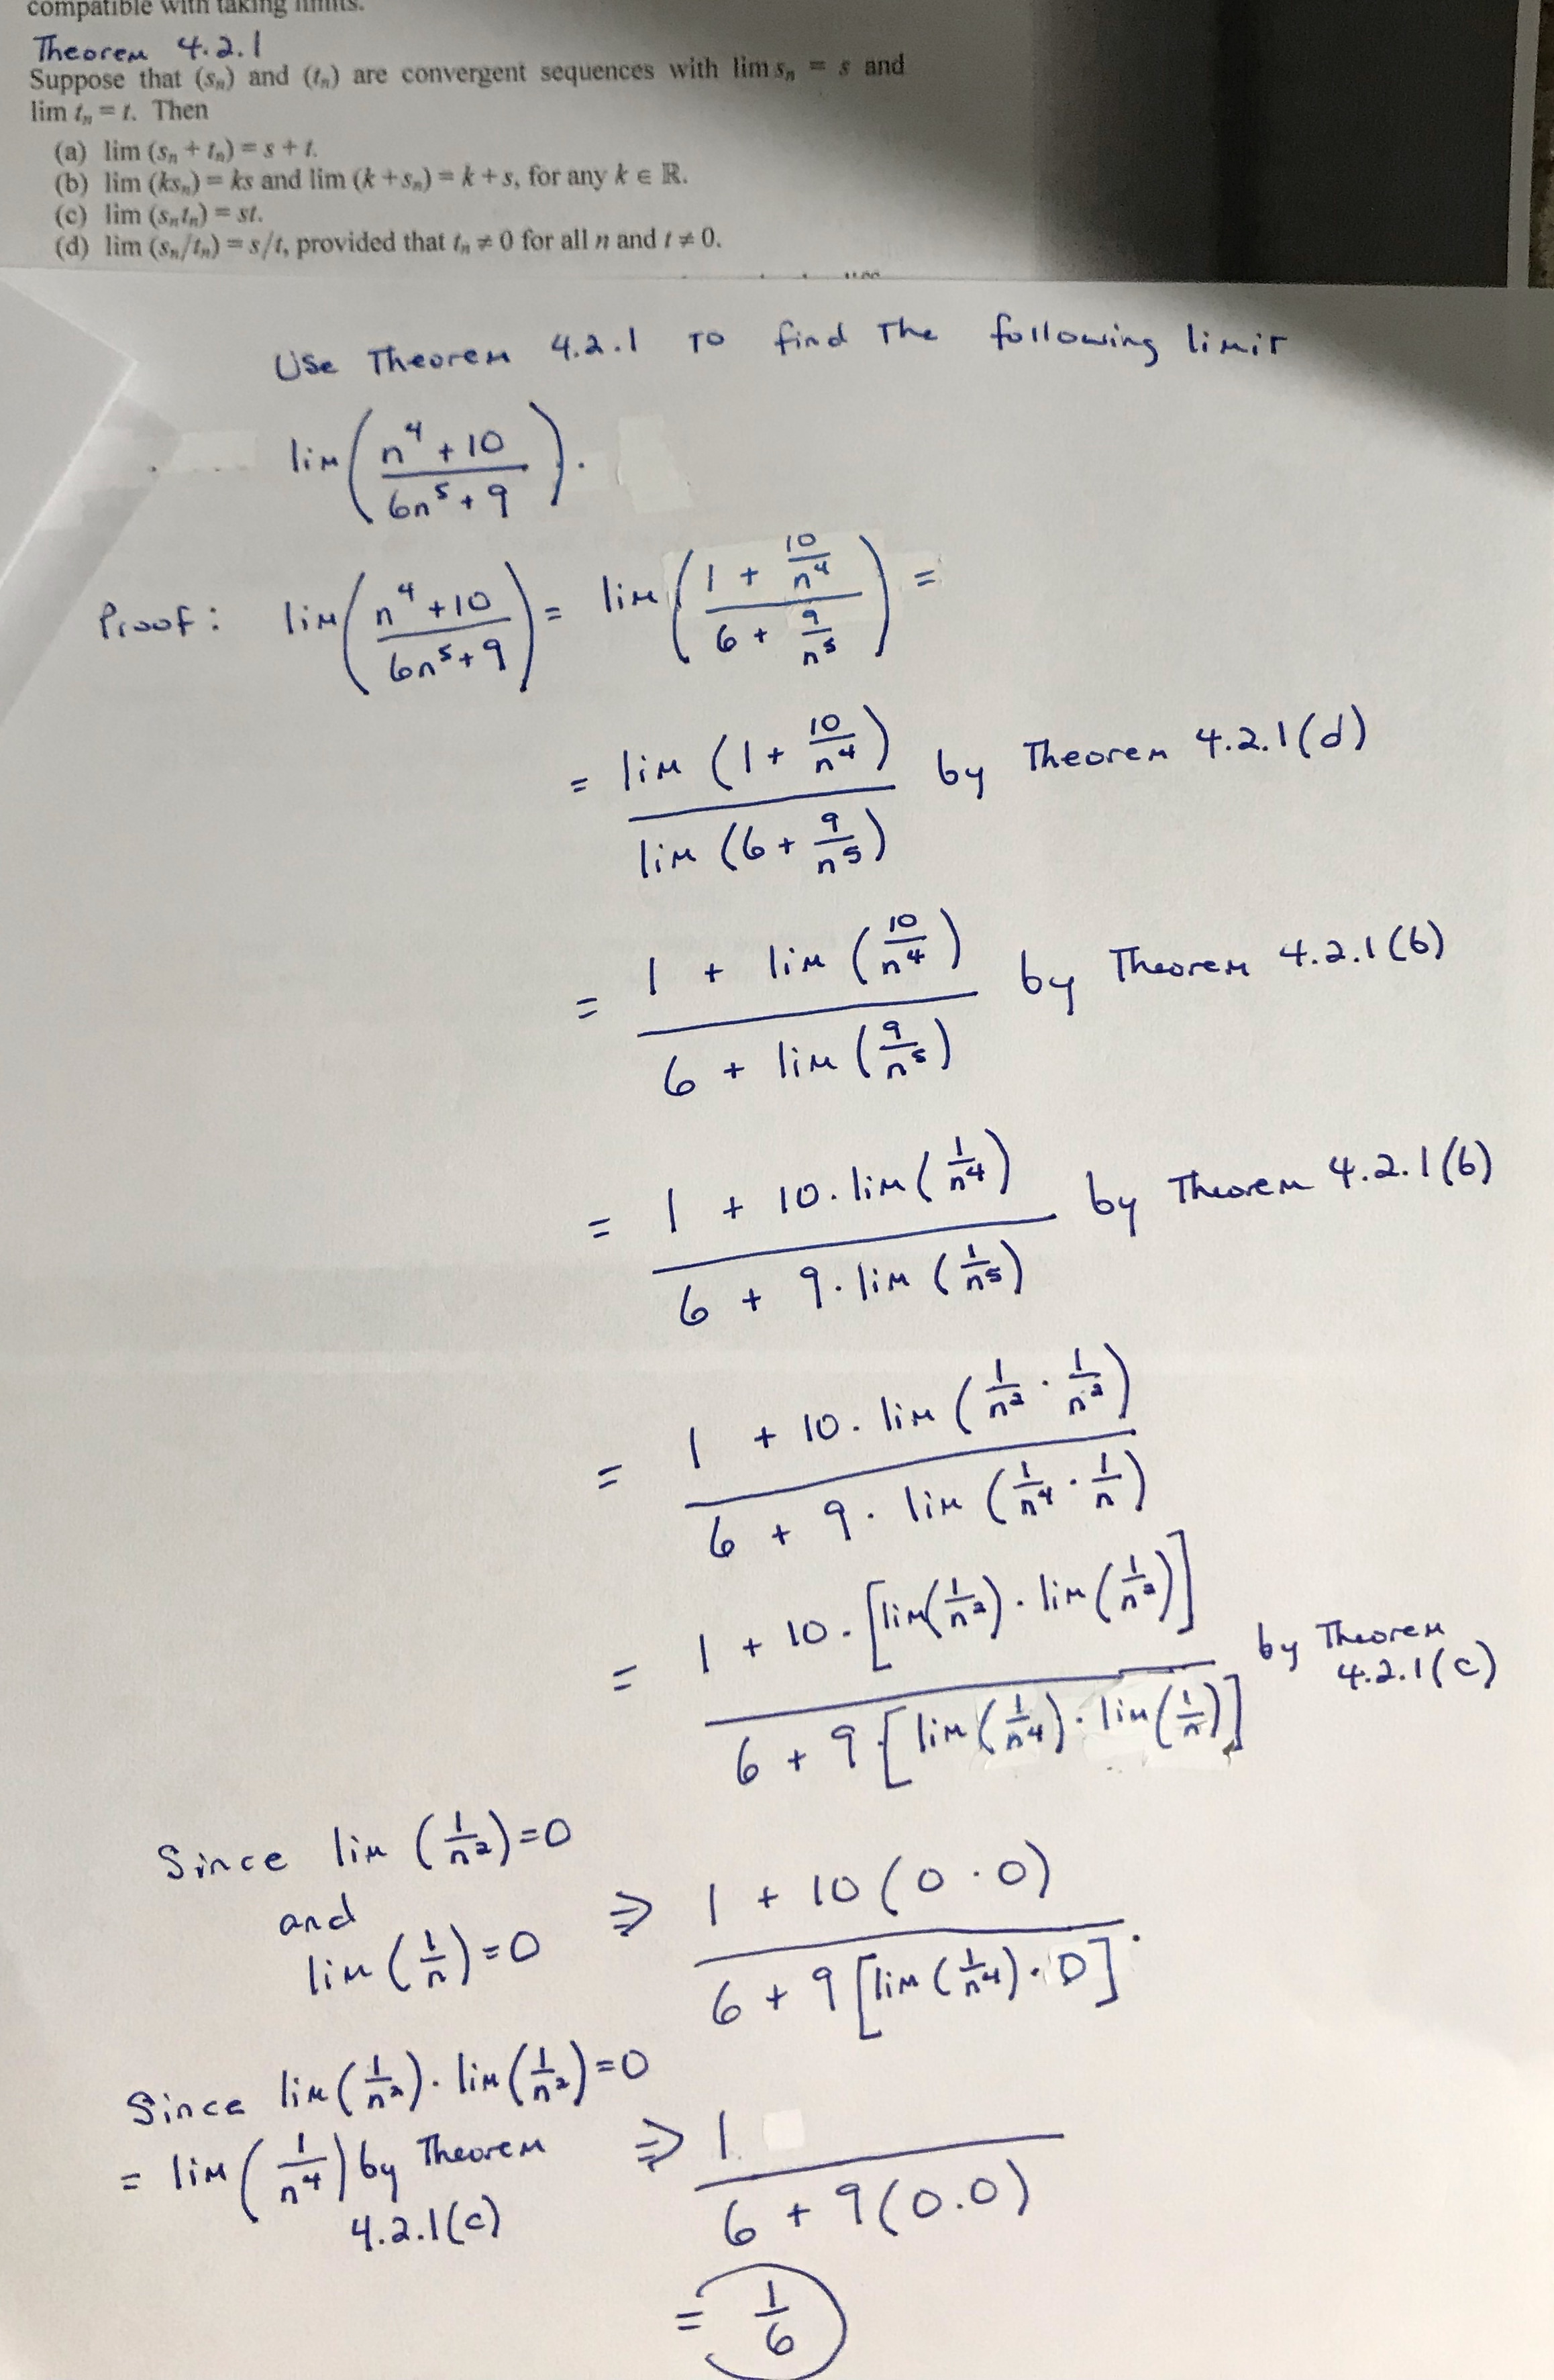 compatible with taking limits.
Theorem 4.2.1
Suppose that (sₙ) and (tₙ) are convergent sequences with lim sₙ = s and
lim tₙ = t. Then
(a) lim (sₙ + tₙ) = s + t.
(b) lim (ksₙ) = ks and lim (k + sₙ) = k + s, for any k ∈ ℝ.
(c) lim (sₙtₙ) = st.
(d) lim (sₙ/tₙ) = s/t, provided that tₙ ≠ 0 for all n and t ≠ 0.
Use Theorem 4.2.1 to find the following limit
lim((n⁴ + 10)/(6n⁵ + 9)).
Proof: lim((n⁴ + 10)/(6n⁵ + 9)) = lim((1 + 10/n⁴)/(6 + 9/n⁵)) =
= lim (1 + 10/n⁴) / lim (6 + 9/n⁵) by Theorem 4.2.1(d)
= (1 + lim (10/n⁴)) / (6 + lim (9/n⁵)) by Theorem 4.2.1(b)
= (1 + 10·lim(1/n⁴)) / (6 + 9·lim (1/n⁵)) by Theorem 4.2.1(b)
= (1 + 10·lim (1/n² · 1/n²)) / (6 + 9·lim (1/n⁴ · 1/n))
= (1 + 10·[lim(1/n²) · lim(1/n²)]) / (6 + 9·[lim(1/n⁴) · lim(1/n)]) by Theorem
4.2.1(c)
Since lim (1/n²) = 0
and
lim (1/n) = 0 ⇒ (1 + 10(0 · 0)) / (6 + 9[lim(1/n⁴) · 0]).
Since lim(1/n²) · lim(1/n²) = 0
= lim(1/n⁴) by Theorem ⇒ 1 / (6 + 9(0.0))
4.2.1(c)
= 1/6